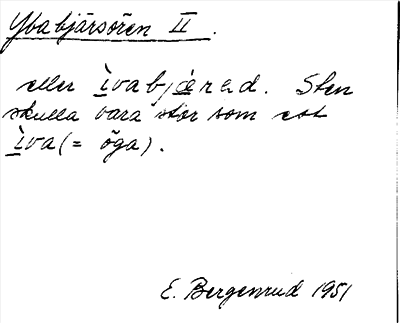 Ybabjärsören II.
eller ìvabjæ̀rəd. Sten
skulla vara stor som ett
ìva (= öga).
E. Bergenrud 1951